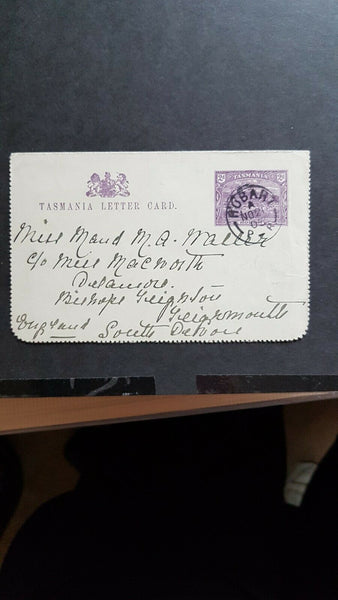 TASMANIA
2d 2d
HOBART
A
NO 2
TASMANIA LETTER CARD.
Miss Maud M. A. Waller
c/o Miss Macworth
Delamore.
Bishops Teignton
Teignmouth
England South Devon